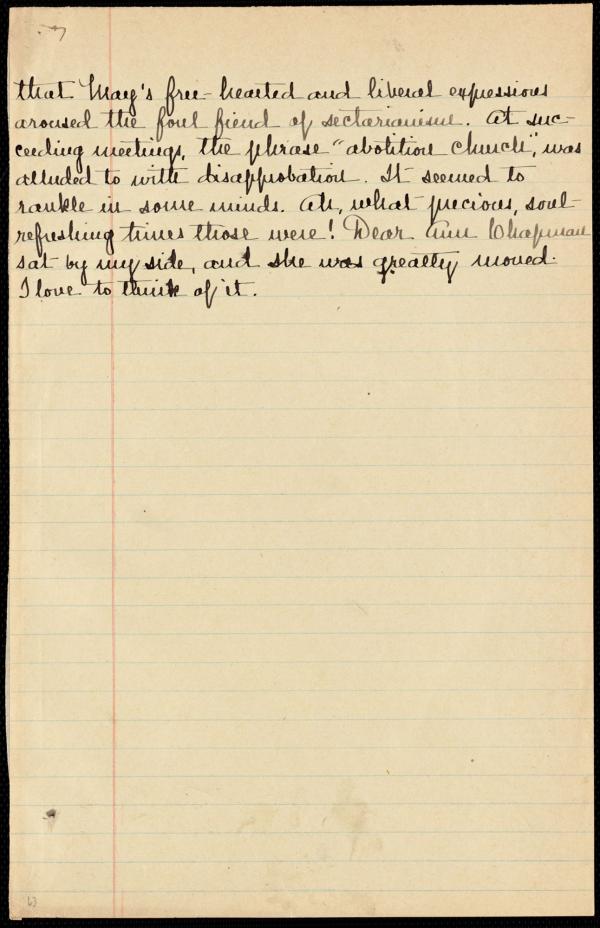 that May's free-hearted and liberal expressions
aroused the foul fiend of sectarianism. At suc-
ceeding meetings, the phrase "abolition church", was
alluded to with disapprobation. It seemed to
rankle in some minds. Ah, what precious, soul-
refreshing times those were! Dear Ann Chapman
sat by my side, and she was greatly moved.
I love to think of it.
63